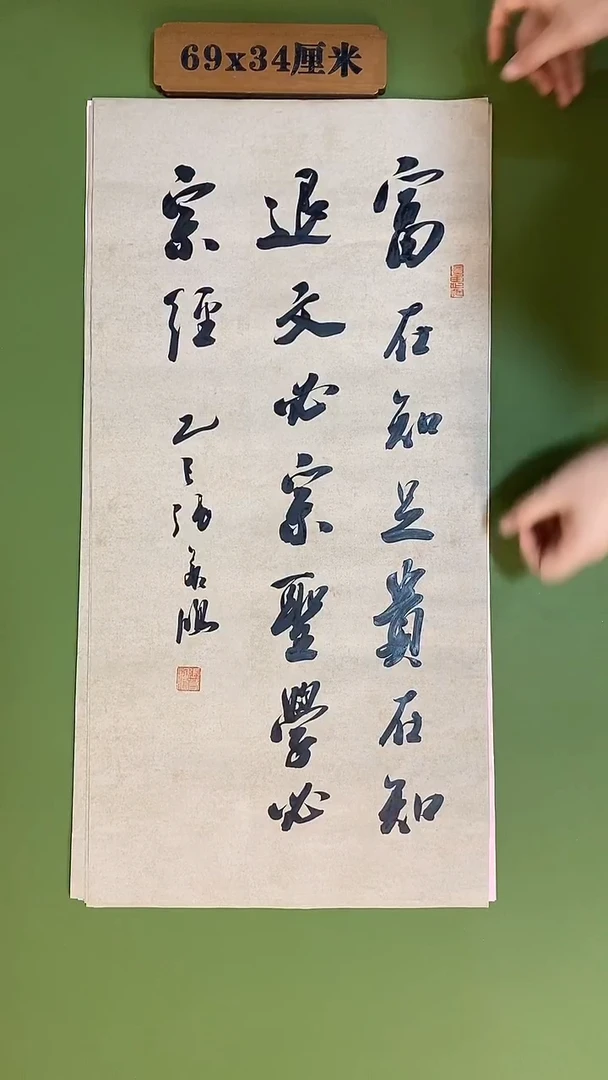 69x34厘米
富在知足貴在知
退文必宗聖學必
宗經
乙巳